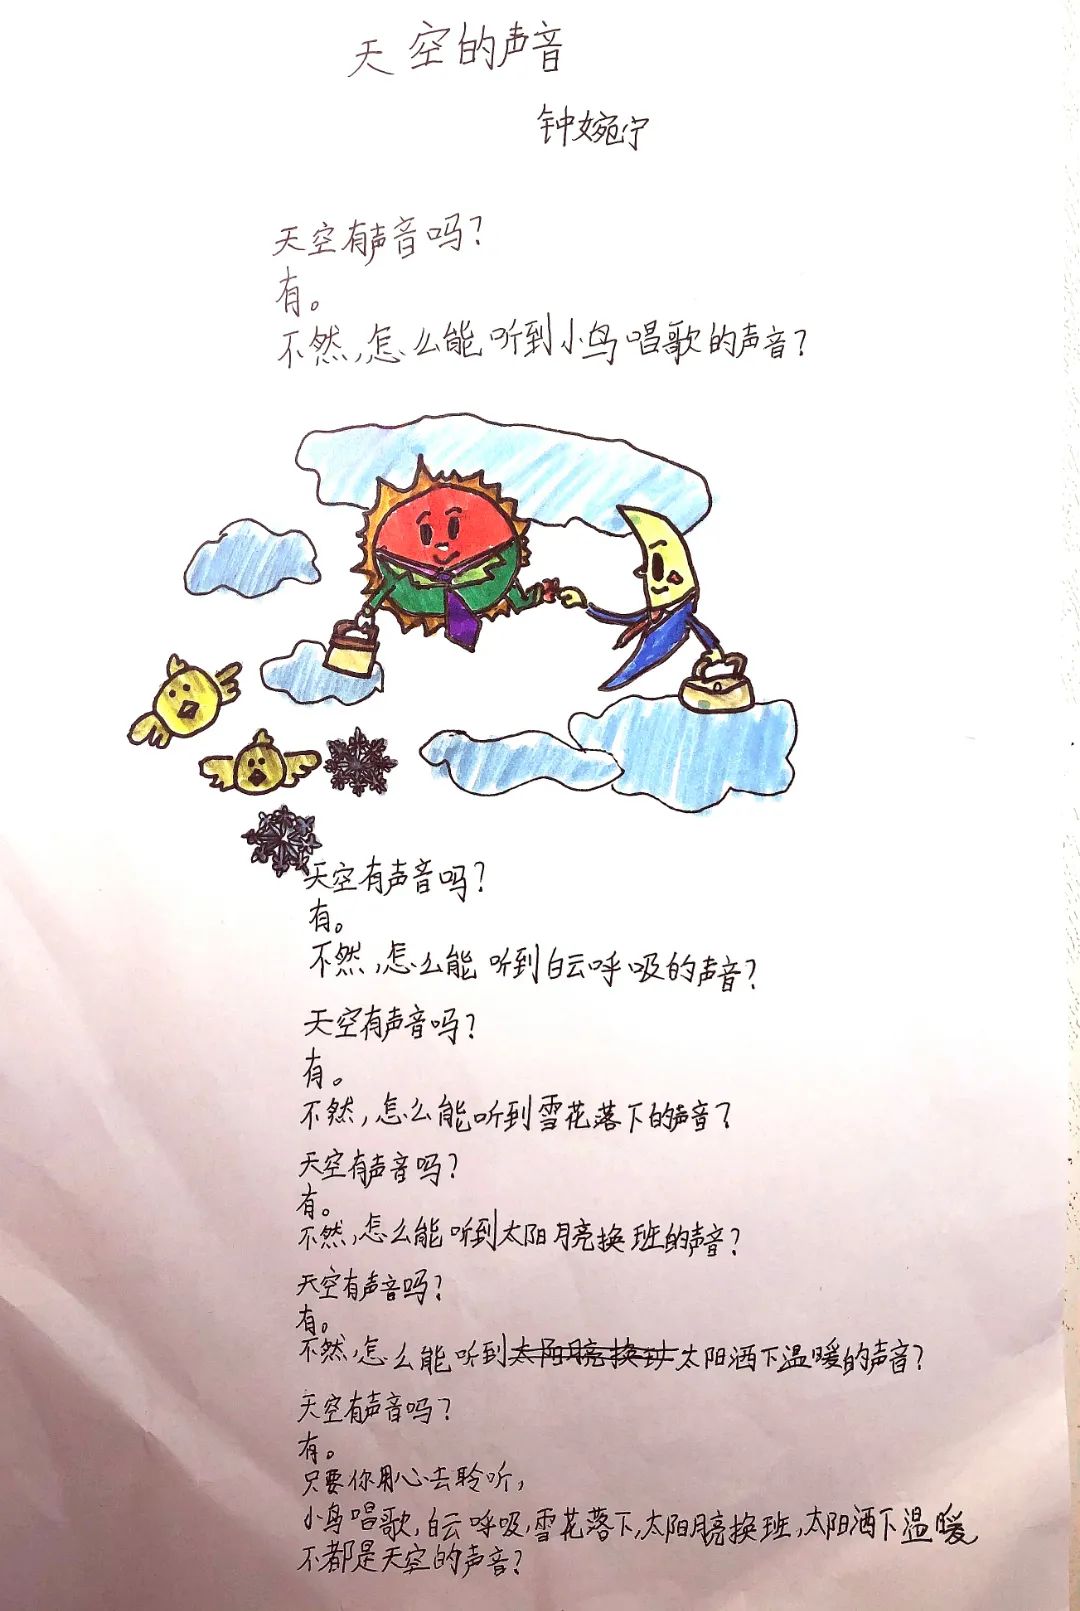 天空的声音
钟婉宁
天空有声音吗?
有。
不然,怎么能听到小鸟唱歌的声音?
天空有声音吗?
有。
不然,怎么能听到白云呼吸的声音?
天空有声音吗?
有。
不然,怎么能听到雪花落下的声音?
天空有声音吗?
有。
不然,怎么能听到太阳月亮换班的声音?
天空有声音吗?
有。
不然,怎么能听到太阳月亮换班太阳洒下温暖的声音?
天空有声音吗?
有。
只要你用心去聆听,
小鸟唱歌,白云呼吸,雪花落下,太阳月亮换班,太阳洒下温暖
不都是天空的声音?